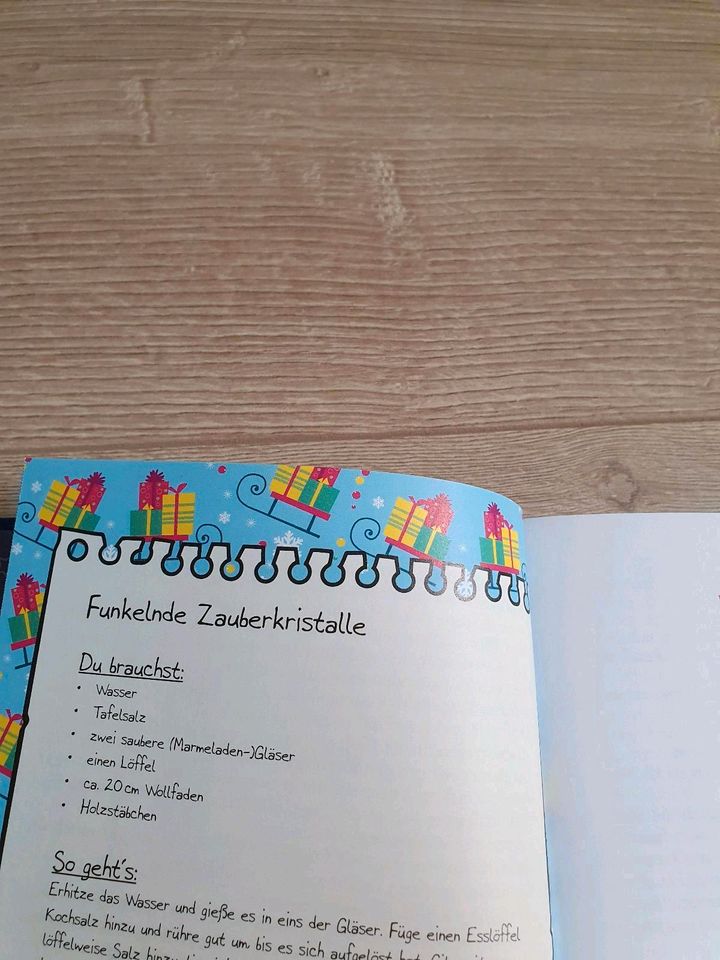 Funkelnde Zauberkristalle
Du brauchst:
• Wasser
• Tafelsalz
• zwei saubere (Marmeladen-)Gläser
• einen Löffel
• ca. 20 cm Wollfaden
• Holzstäbchen
So geht's:
Erhitze das Wasser und gieße es in eins der Gläser. Füge einen Esslöffel
Kochsalz hinzu und rühre gut um, bis es sich aufgelöst hat.
löffelweise Salz hinzu